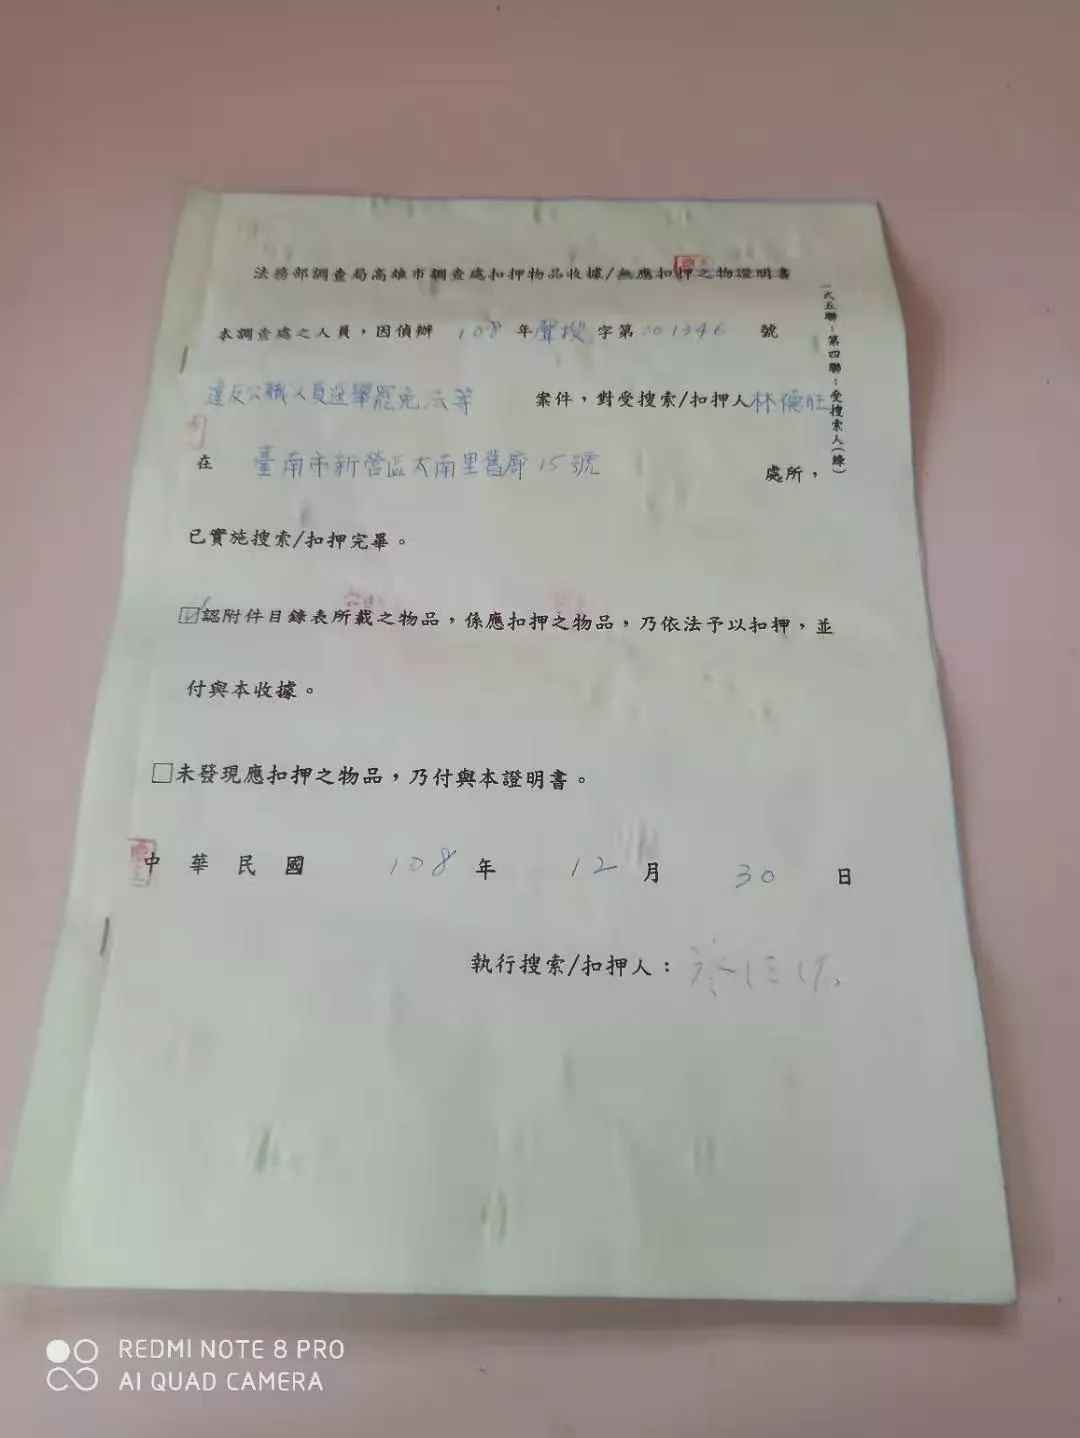 法務部調查局高雄市調查處扣押物品收據/無應扣押之物證明書
一式五聯：第四聯：受搜索人(綠)
本調查處之人員，因偵辦 108 年聲搜字第001346 號
違反公職人員選舉罷免法等 案件，對受搜索/扣押人林德旺
在 臺南市新營區太南里舊廍15號 處所，
已實施搜索/扣押完畢。
☑認附件目錄表所載之物品，係應扣押之物品，乃依法予以扣押，並
付與本收據。
□未發現應扣押之物品，乃付與本證明書。
中華民國 108 年 12 月 30 日
執行搜索/扣押人：
REDMI NOTE 8 PRO
AI QUAD CAMERA